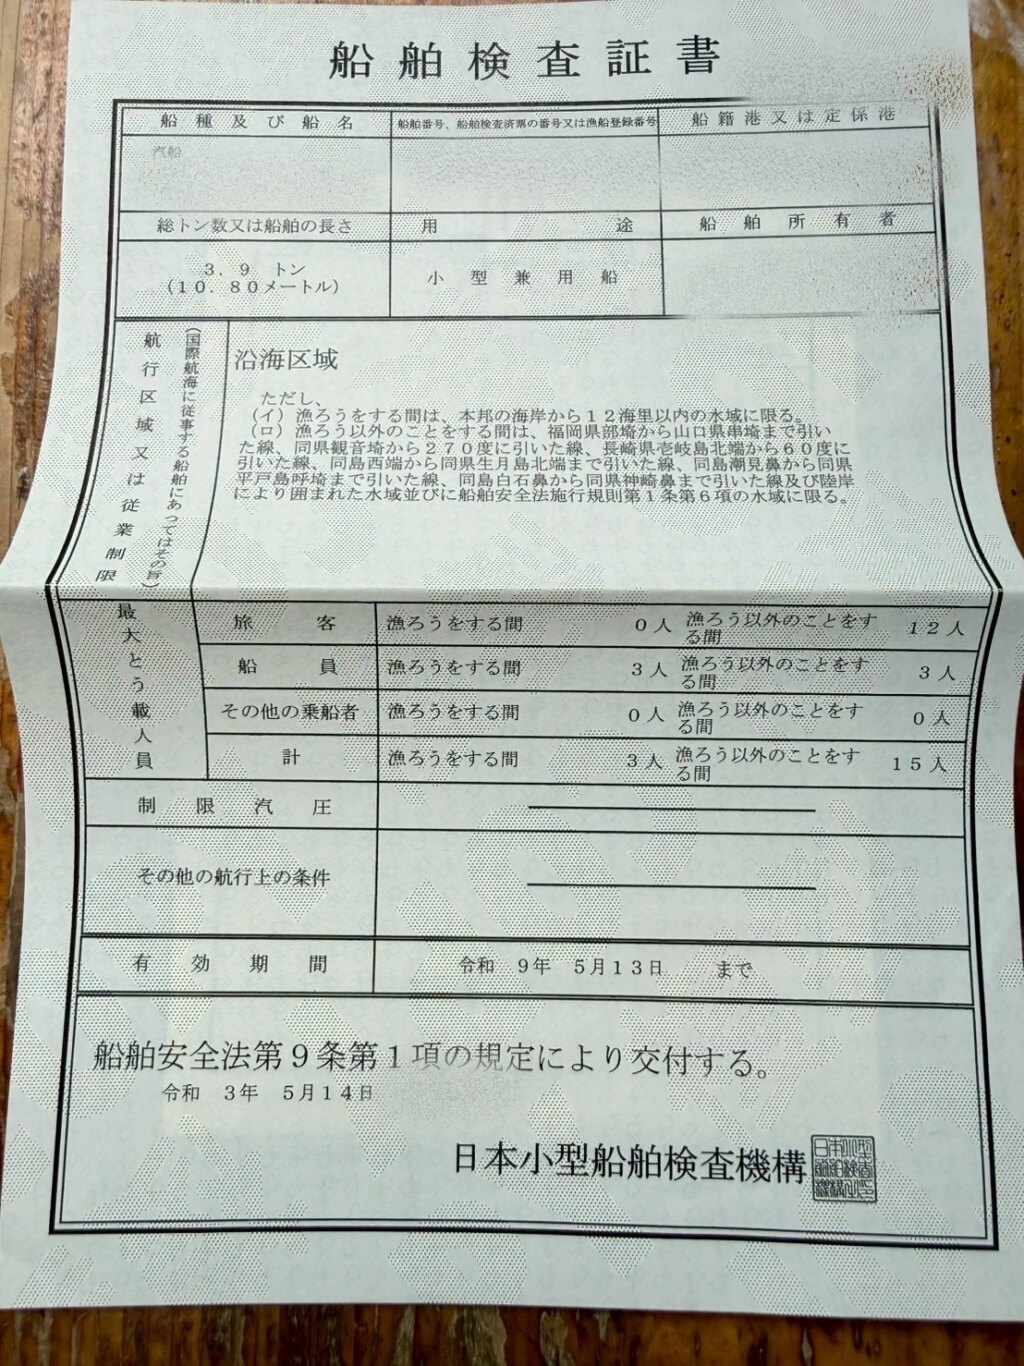 船舶検査証書
船種及び船名
船舶番号、船舶検査済票の番号又は漁船登録番号
船籍港又は定係港
汽船
総トン数又は船舶の長さ
用途
船舶所有者
3.9 トン
(10.80メートル)
小型兼用船
航行区域又は従業制限
(国際航海に従事する船舶にあってはその旨)
沿海区域
ただし、
(イ)漁ろうをする間は、本邦の海岸から12海里以内の水域に限る。
(ロ)漁ろう以外のことをする間は、福岡県部埼から山口県串埼まで引い
た線、同県観音埼から270度に引いた線、長崎県壱岐島北端から60度に
引いた線、同島西端から同県生月島北端まで引いた線、同島潮見鼻から同県
平戸島呼埼まで引いた線、同島白石鼻から同県神崎鼻まで引いた線及び陸岸
により囲まれた水域並びに船舶安全法施行規則第1条第6項の水域に限る。
最大とう載人員
旅客
漁ろうをする間 0人
漁ろう以外のことをす
る間 12人
船員
漁ろうをする間 3人
漁ろう以外のことをす
る間 3人
その他の乗船者
漁ろうをする間 0人
漁ろう以外のことをす
る間 0人
計
漁ろうをする間 3人
漁ろう以外のことをす
る間 15人
制限汽圧
その他の航行上の条件
有効期間
令和 9年 5月13日 まで
船舶安全法第9条第1項の規定により交付する。
令和 3年 5月14日
日本小型船舶検査機構